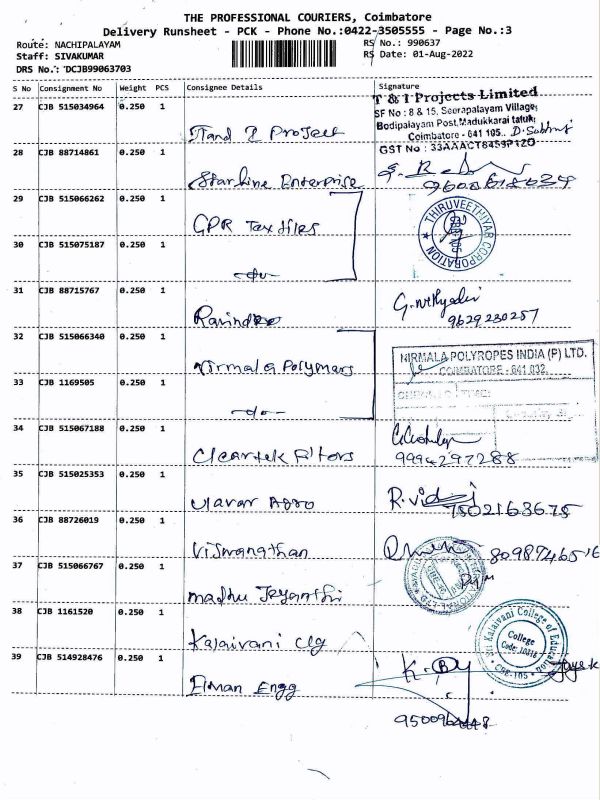 THE PROFESSIONAL COURIERS, Coimbatore
Delivery Runsheet - PCK - Phone No.:0422-3505555 - Page No.:3
Route: NACHIPALAYAM
RS No.: 990637
Staff: SIVAKUMAR
RS Date: 01-Aug-2022
DRS No.: DCJB99063703
S No Consignment No Weight PCS Consignee Details Signature
27 CJB 515034964 0.250 1
T & I Projects Limited
SF No : 8 & 15, Seerapalayam Village,
Bodipalayam Post, Madukkarai taluk,
Coimbatore - 641 105.
GST No : 33AAACT8459P1Z0
Tand I Project
28 CJB 88714861 0.250 1
Starline Enterprise
29 CJB 515066262 0.250 1
GPR Tax tiles
THIRUVEETHIYAR CORPORATION
30 CJB 515075187 0.250 1
-do-
31 CJB 88715767 0.250 1
9629230257
32 CJB 515066340 0.250 1
Nirmala Polymars
NIRMALA POLYROPES INDIA (P) LTD.
COIMBATORE - 641 032.
33 CJB 1169505 0.250 1
TIME:
-do-
34 CJB 515067188 0.250 1
Cleartek Filtors
9994297288
35 CJB 515025353 0.250 1
Ulavar Agro
7502163675
36 CJB 88726019 0.250 1
Viswanathan
8098746516
37 CJB 515066767 0.250 1
Madhu Jeyanthi
38 CJB 1161520 0.250 1
Kalaivani Clg
Sri Kalaivani College of Education
College
Code: 10318
CBE-105
39 CJB 514928476 0.250 1
Elman Engg